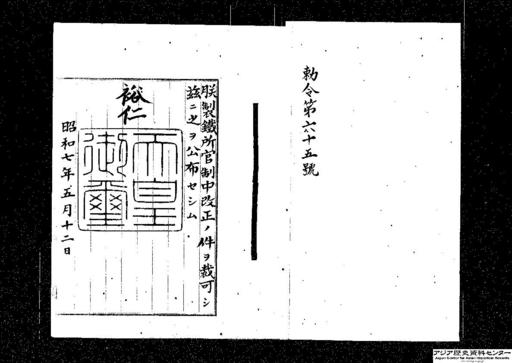 勅令第六十五號
朕製鐵所官制中改正ノ件ヲ裁可シ
茲ニ之ヲ公布セシム
裕仁
天皇
御璽
昭和七年五月十二日
アジア歴史資料センター
Japan Center for Asian Historical Records